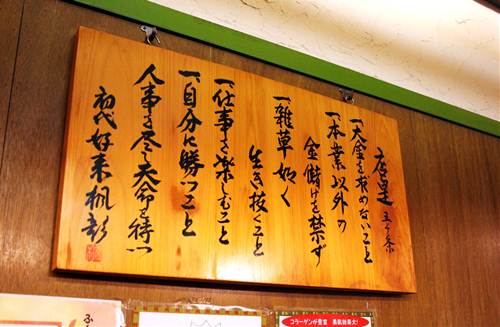 店是 五ヶ条
一、大金を求めないこと
一、本業以外の
金儲けを禁ず
一、雑草如く
生き抜くこと
一、仕事を楽しむこと
一、自分に勝つこと
人事を尽し天命を待つ
初代 好来 楓彰
コラーゲンが豊富 美肌効果大!